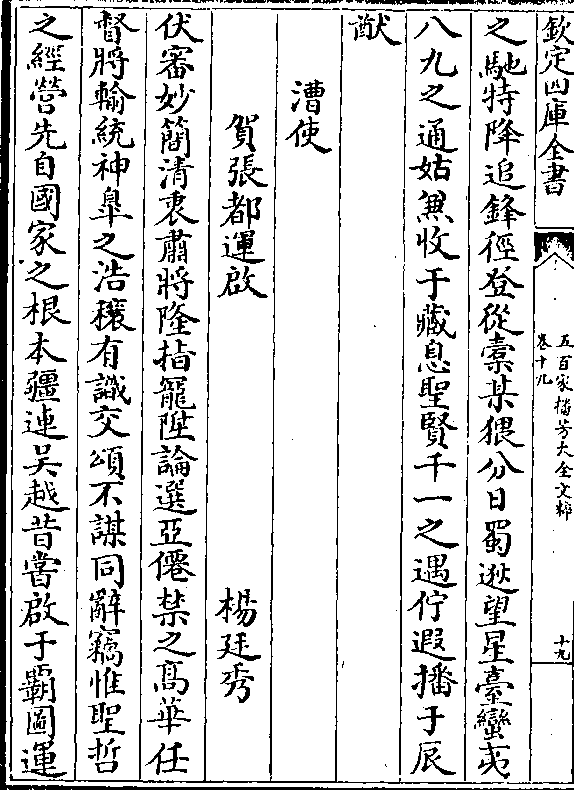 欽定四庫全書
五百家播芳大全文粹
卷十九
十九
之馳特降追鋒徑登從橐某猥分日蜀逖望星臺蠻夷
八九之通姑無收于藏息聖賢千一之遇佇遐播于辰
猷
漕使
賀張都運啟
楊廷秀
伏審妙簡清衷肅將隆指寵陞論選亞僊禁之高華任
督將輸統神臯之浩穰有識交頌不謀同辭竊惟聖哲
之經營先自國家之根本疆連吳越昔嘗啟于覇圖運